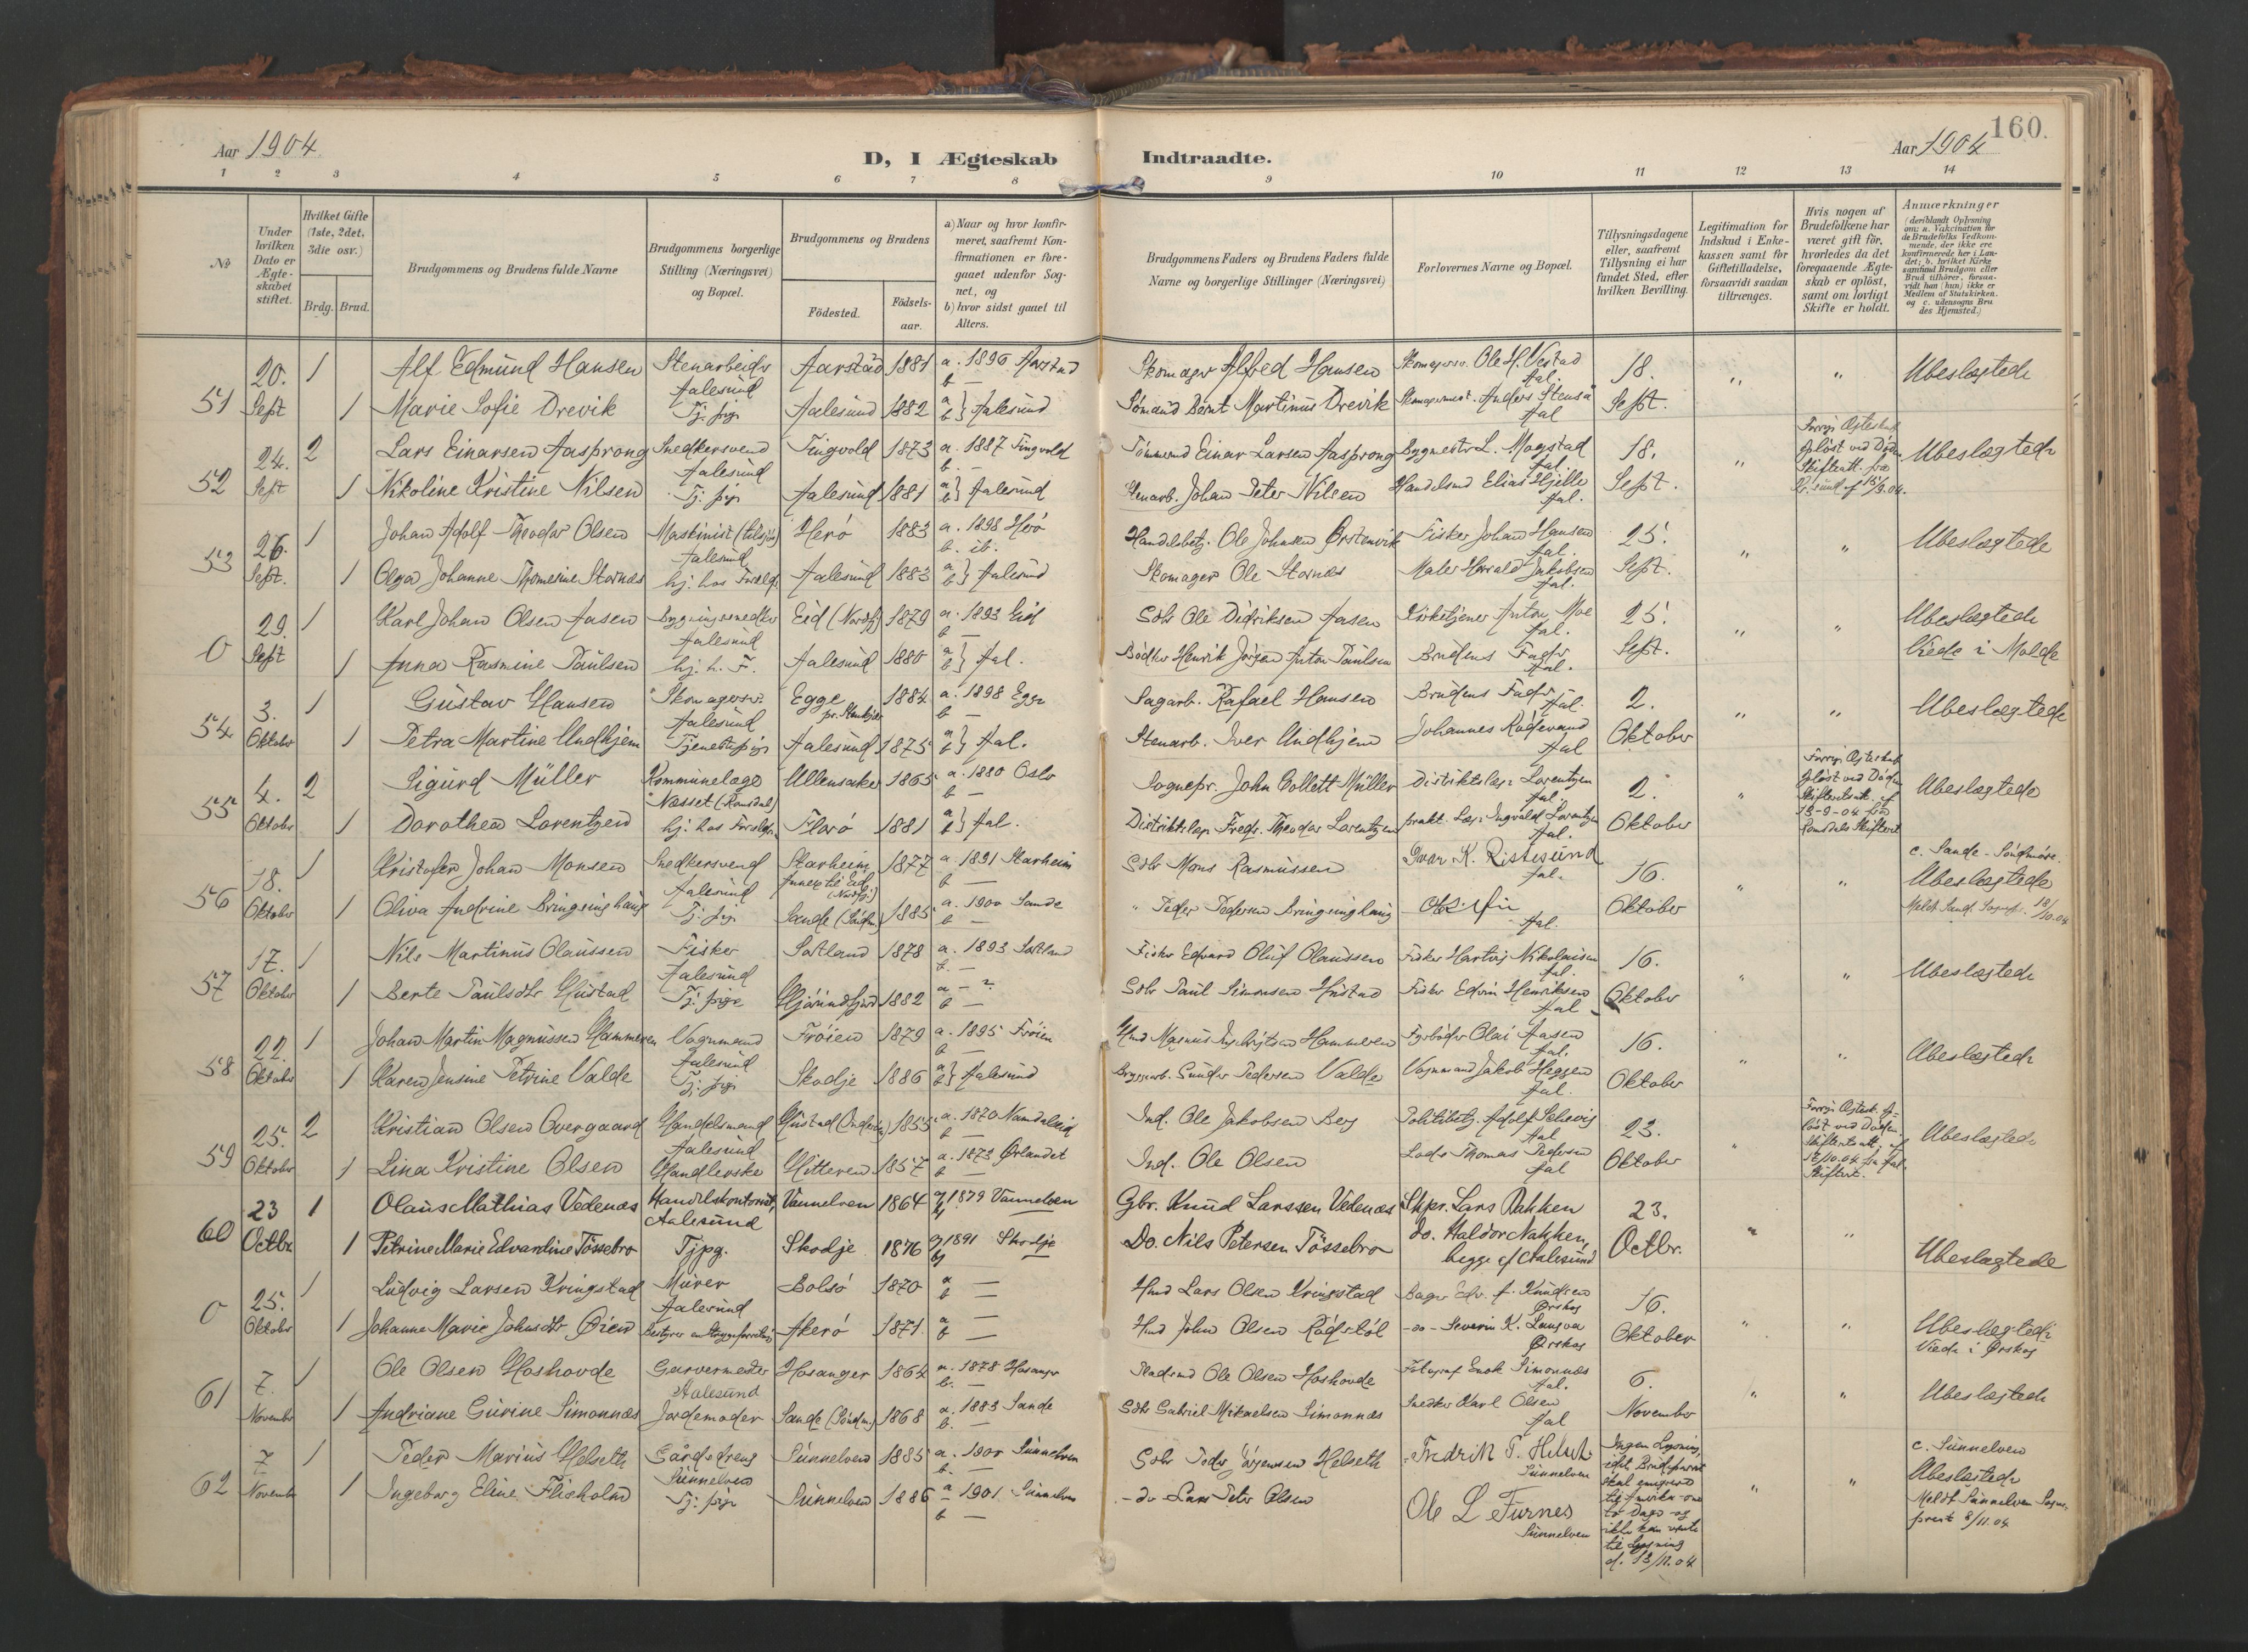 160.
Aar 1904
D, I Ægteskab Indtraadte.
Aar 1904
1 2 3 4 5 6 7 8 9 10 11 12 13 14
No
Under hvilken Dato er Ægteskabet stiftet.
Hvilket Gifte (1ste, 2det, 3die osv.)
Brdg. Brud.
Brudgommens og Brudens fulde Navne
Brudgommens borgerlige Stilling (Næringsvei) og Bopæl.
Brudgommens og Brudens
Fødested.
Fødsels-aar.
a) Naar og hvor konfir-
meret, saafremt Kon-
firmationen er fore-
gaaet udenfor Sog-
net, og
b) hvor sidst gaaet til
Alters.
Brudgommens Faders og Brudens Faders fulde
Navne og borgerlige Stillinger (Næringsvei)
Forlovernes Navne og Bopæl.
Tillysningsdagene
eller, saafremt
Tillysning ei har
fundet Sted, efter
hvilken Bevilling.
Legitimation for
Indskud i Enke-
kassen samt for
Giftetilladelse,
forsaavidt saadan
tiltrænges.
Hvis nogen af
Brudefolkene har
været gift før,
hvorledes da det
foregaaende Ægte-
skab er opløst,
samt om lovligt
Skifte er holdt.
Anmærkninger
(deriblandt Oplysning
om: a. Vaccination for
de Brudefolks Vedkom-
mende, der ikke ere
konfirmerede her i Lan-
det; b. hvilket Kirke
samfund Brudgom eller
Brud tilhører, forsaa-
vidt han (hun) ikke er
Medlem af Statskirken.
og c. udensogns Bru
des Hjemsted.)
51 20. Sept 1 Alf Edmund Hansen Stenarbeider Aalesund Aarstad 1881 a. 1896 Aarstad b — Skomager Alfred Hansen Ole H. Vestad Aal. 18. Sept. " " Ubeslægtede
1 Marie Sofie Drevik Tj. pige Aalesund 1882 a b } Aalesund Sømand Bernt Martinus Drevik Anders Stenså Aal
52 24. Sept 2 Lars Einarsen Aasprong Snedkersvend Aalesund Tingvold 1873 a. 1887 Tingvold b. — Tømmermd Einar Larsen Aasprong Bygmestr L. Mogstad Aal. 18. Sept. " Forrige Ægteskab opløst ved Døden Skifteatt. fra Kr.sund af 15/9.04. Ubeslægtede
1 Nikoline Kristine Nilsen Tj. pige Aalesund 1881 a b } Aalesund Stenarb. Johan Peter Nilsen Handelsmd Elias Hjelle Aal.
53 26. Sept. 1 Johan Adolf Theodor Olsen Maskinist (tilsjøs) Aalesund Herø 1883 a. 1898 Herø b. ib. Handelsbetj. Ole Johnsen Ørstenvik Fisker Johan Hansen Aal. 25. Sept. " " Ubeslægtede
1 Olga Johanne Thomesine Stornæs hj. hos Foreldr. Aalesund 1883 a b } Aalesund Skomager Ole Stornæs Maler Harald Jakobsen Aal.
0 29. Sept 1 Karl Johan Olsen Aasen Bygningssnedker Aalesund Eid (Nordfj) 1879 a. 1893 Eid b — Gdbr Ole Didriksen Aasen Kirketjener Anton Moe Aal. 25. Sept. " " Ubeslægtede
1 Anna Rasmine Paulsen hj. h. F. Aalesund 1880 a b } Aal. Bødker Henrik Jørgen Anton Paulsen Brudens Fader Aal. Viede i Molde
54 3. Oktober 1 Gustav Hansen Skomagersv. Aalesund Egge pr. Stenkjær 1884 a. 1898 Egge b — Sagarb. Rafael Hansen Brudens Fader Aal. 2. Oktober " " Ubeslægtede
1 Petra Martine Undhjem Tjenestepige Aalesund 1875 a b } Aal. Stenarb. Iver Undhjem Johannes Rødevand Aal
55 4. Oktober 2 Sigurd Müller Kommunelæge Næsset (Romsdal) Ullensaker 1865 a. 1880 Oslo b — Sognepr. John Collett Müller Distriktslæge Lorentzen Aal. 2. Oktober " Forrige Ægteskab opløst ved Døden Skifteretsatt. af 13-9-04 fra Romsdals Skifteret Ubeslægtede
1 Dorothea Lorentzen hj. hos Foreldre Florø 1881 a b } Aal. Distriktslæge Fredr. Theodor Lorentzen prakt. Læge Ingvald Lorentzen Aal.
56 18. Oktober 1 Kristofer Johan Monsen Snedkersvend Aalesund Starheim Annex til Eid (Nordfj.) 1877 a 1891 Starheim b — Gdbr Mons Rasmussen Ivar K. Ristesund Aal. 16. Oktober " " c. Sande - Søndmøre. Ubeslægtede
1 Oliva Andrine Bringsinghaug Tj. pige Sande (Søndm) 1885 a. 1900 Sande b — " Peder Pedersen Bringsinghaug Aal. Meldt Sand. Sognepr. 18/10.04
57 17. Oktober 1 Nils Martinus Olaussen Fisker Aalesund Sortland 1878 a. 1893 Sortland b. — Fisker Edvard Oluf Olaussen Fisker Hartvig Nikolaisen Aal. 16. Oktober " " Ubeslægtede
1 Berte Paulsdtr Hustad Tj. pige Hjørundfjord 1882 a — ? b — Gdbr Paul Simonsen Hustad Fisker Edvin Henriksen Aal
58 22. Oktober 1 Johan Martin Magnussen Hammeren Vognmand Aalesund Frøien 1879 a. 1895 Frøien b — Hammeren Fyrbøder Olai Aasen Aal. 16. Oktober " " Ubeslægtede
1 Karen Jensine Petrine Valde Tj. pige Skodje 1886 a b } Aalesund Bryggearb. Sunder Pedersen Valde Vognmand Jakob Heggen Aal.
59 25. Oktober 2 Kristian Olsen Overgaard Handelsmand Aalesund Hustad (Inderøen) 1855 a. 1870 Namdalseid b — Ind. Ole Jakobsen Berg Politibetj. Adolf Schevig Aal 23. Oktober " Forrige Ægtesk. opløst ved Døden, Skifteretsatt. af 17/10.04 fra Aal. Skifteret. Ubeslægtede
1 Lina Kristine Olsen Handlerske Hitteren 1857 a. 1873 Ørlandet b — Ind. Ole Olsen Lods Thomas Pedersen Aal
60 23 Octbr. 1 Olaus Mathias Vedenæs Handelskontorist, Aalesund Vannelven 1864 a) 1879 Vannelven b) Gbr. Knud Larssen Vedenæs Skpr. Lars Nakken 23. Octbr. " " Ubeslægtede
1 Petrine Marie Edvardine Tøssebro Tjpg. Skodje 1876 a) 1891 Skodje b) Do. Nils Petersen Tøssebro do. Haldor Nakken, begge af Aalesund
0 25. Oktober 1 Ludvig Larsen Kringstad Murer Aalesund Bolsø 1870 a — b — Gmd Lars Olsen Kringstad Bager Edv. A. Knudsen Ørskog 16. Oktober " " Ubeslægtede
1 Johanne Marie Johnsdtr Øien Akerø 1871 a — b — Gmd John Olsen Rødstøl - do - Severin K. Langva Ørskog Viede i Ørskog
61 7. November 1 Ole Olsen Hoshovde Garvermester Aalesund Hosanger 1864 a. 1878 Hosanger b. — Pladsmd Ole Olsen Hoshovde Fotograf Enok Simonnæs Aal. 6. November " " Ubeslægtede
1 Andriane Gurine Simonnæs Jordemoder Sande (Søndm) 1868 a. 1883 Sande b. — Gdbr Gabriel Mikaelsen Simonnæs Snedker Karl Olsen Aal
62 7 November 1 Peder Marius Helseth Gårdsdreng Sunnelven Sunnelven 1885 a. 1900 Sunnelven b. — Gdbr Peder Jørgensen Helseth Fredrik P. Helset Sunnelven Ingen Lysning, idet Brudeparret skal emigrere til Amerika om to Dage og ikke kan vente til Lysning d. 13/11.04 " " c. Sunnelven Ubeslægtede
1 Ingeborg Eline Flisholm Tj. pige Sunnelven 1886 a 1901 Sunnelven b — - do - Lars Peter Olsen Ole L Furnes Sunnelven Meldt Sunnelven Sogneprest 8/11.04